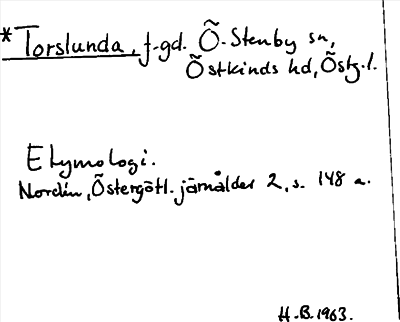 *Torslunda, f.gd. Ö. Stenby sn,
Östkinds hd, Östg.l.
Etymologi.
Nordén, Östergötl. järnålder 2, s. 148 a.
H.B. 1963.